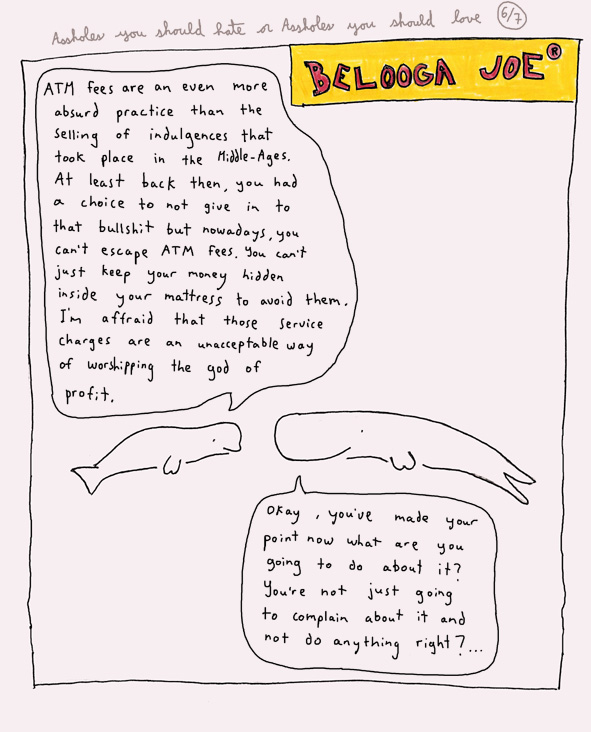 Assholes you should hate or Assholes you should love 6/7
BELOOGA JOE®
ATM fees are an even more
absurd practice than the
selling of indulgences that
took place in the Middle-Ages.
At least back then, you had
a choice to not give in to
that bullshit but nowadays, you
can't escape ATM fees. You can't
just keep your money hidden
inside your mattress to avoid them.
I'm affraid that those service
charges are an unacceptable way
of worshipping the god of
profit.
Okay, you've made your
point now what are you
going to do about it?
You're not just going
to complain about it and
not do anything right?...